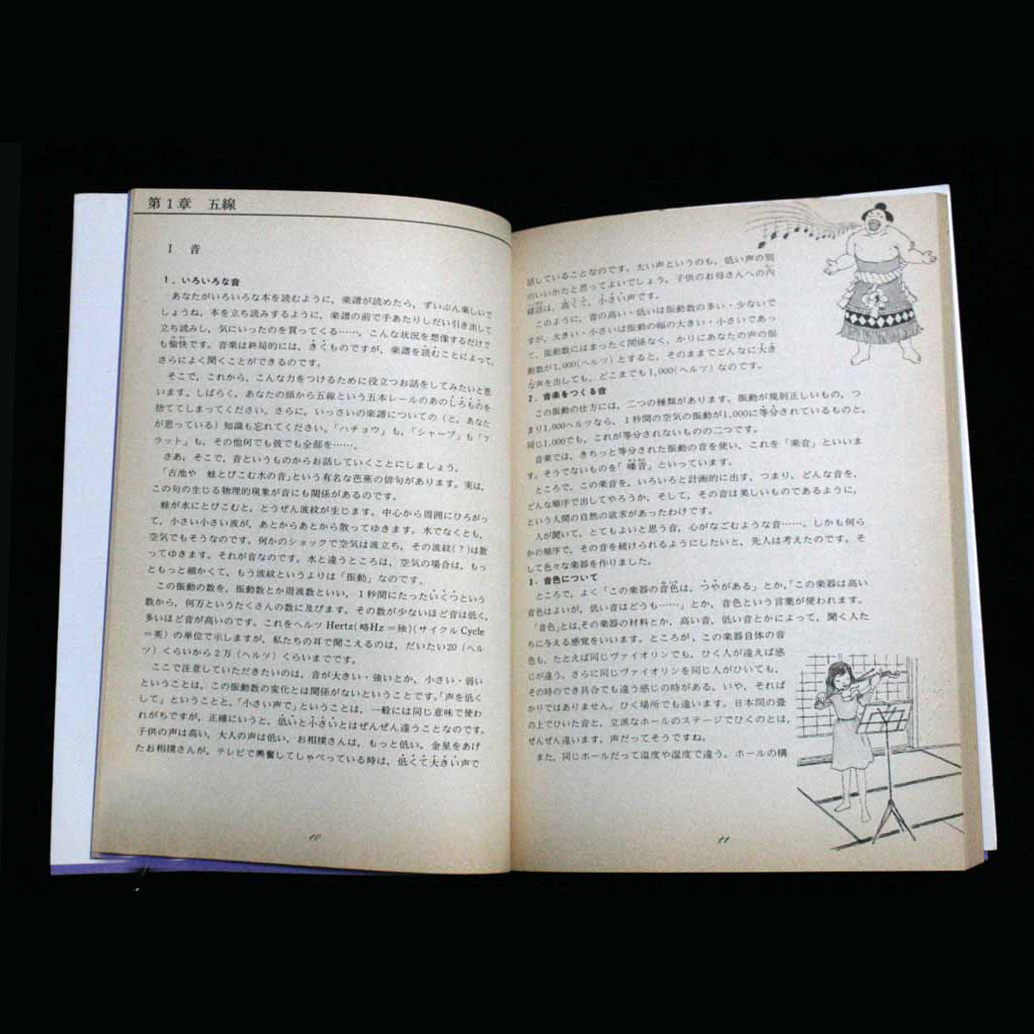 第1章 五線
I 音
1. いろいろな音
あなたがいろいろな本を読むように，楽譜が読めたら，ずいぶん楽しいで
しょうね。本を立ち読みするように，楽譜の前で手あたりしだい引き出して
立ち読みし，気にいったのを買ってくる……。こんな状況を想像するだけで
も愉快です。音楽は終局的には，きくものですが，楽譜を読むことによって，
さらによく聞くことができるのです。
そこで，これから，こんな力をつけるために役立つお話をしてみたいと思
います。しばらく，あなたの頭から五線という五本レールのあのしろものを
捨ててしまってください。さらに，いっさいの楽譜についての（と，あなた
が思っている）知識も忘れてください。「ハチョウ」も，「シャープ」も「フ
ラット」も，その他何でも彼でも全部を……。
さあ，そこで，音というものからお話していくことにしましょう。
「古池や 蛙とびこむ水の音」という有名な芭蕉の俳句があります。実は，
この句の生じる物理的現象が音にも関係があるのです。
蛙が水にとびこむと，とうぜん波紋が生じます。中心から周囲にひろがっ
て，小さい小さい波が，あとからあとから散ってゆきます。水でなくとも，
空気でもそうなのです。何かのショックで空気は波立ち，その波紋(？)は散
ってゆきます。それが音なのです。水と違うところは，空気の場合は，もっ
ともっと細かくて，もう波紋というよりは「振動」なのです。
この振動の数を，振動数とか周波数といい，1秒間にたったいくつという
数から，何万というたくさんの数に及びます。その数が少ないほど音は低く，
多いほど音が高いのです。これをヘルツ Hertz(略Hz＝独)(サイクル Cycle
＝英) の単位で示しますが，私たちの耳で聞こえるのは，だいたい20 (ヘル
ツ) くらいから2万 (ヘルツ) くらいまでです。
ここで注意していただきたいのは，音が大きい・強いとか，小さい・弱い
ということは，この振動数の変化とは関係がないということです。「声を低く
して」ということと，「小さい声で」ということは，一般には同じ意味で使わ
れがちですが，正確にいうと，低いと小さいとはぜんぜん違うことなのです。
子供の声は高い，大人の声は低い，お相撲さんは，もっと低い。金星をあげ
たお相撲さんが，テレビで興奮してしゃべっている時は，低くて大きい声で
10
話していることなのです。太い声というのも，低い声の別
のいいかたと思ってよいでしょう。子供のお母さんへの内
緒話は，高くて，小さい声です。
このように，音の高い・低いは振動数の多い・少ないで
すが，大きい・小さいは振動の幅の大きい・小さいであっ
て，振動数にはまったく関係なく，かりにあなたの声の振
動数が1,000(ヘルツ) とすると，そのままでどんなに大き
な声を出しても，どこまでも1,000(ヘルツ) なのです。
2. 音楽をつくる音
この振動の仕方には，二つの種類があります。振動が規則正しいもの，つ
まり1,000ヘルツなら，1秒間の空気の振動が1,000に等分されているものと，
同じ1,000でも，これが等分されないものの二つです。
音楽では，きちっと等分された振動の音を使い，これを「楽音」といいま
す。そうでないものを「噪音」といっています。
ところで，この楽音を，いろいろと計画的に出す，つまり，どんな音を，
どんな順序で出してやろうか，そして，その音は美しいものであるように，
という人間の自然の欲求があったわけです。
人が聞いて，とてもよいと思う音，心がなごむような音……，しかも何ら
かの順序で，その音を続けられるようにしたいと，先人は考えたのです。そ
して色々な楽器を作りました。
3. 音色について
ところで，よく「この楽器の音色は，つやがある」とか，「この楽器は高い
音色はよいが，低い音はどうも……」とか，音色という言葉が使われます。
「音色」とは，その楽器の材料とか，高い音，低い音とかによって，聞く人た
ちに与える感覚をいいます。ところが，この楽器自体の音
色も，たとえば同じヴァイオリンでも，ひく人が違えば感
じが違う。さらに同じヴァイオリンを同じ人がひいても，
その時のでき具合でも違う感じの時がある。いや，それば
かりではありません。ひく場所でも違います。日本間の畳
の上でひいた音と，立派なホールのステージでひくのとは，
ぜんぜん違います。声だってそうですね。
また，同じホールだって温度や湿度で違う。ホールの構
11